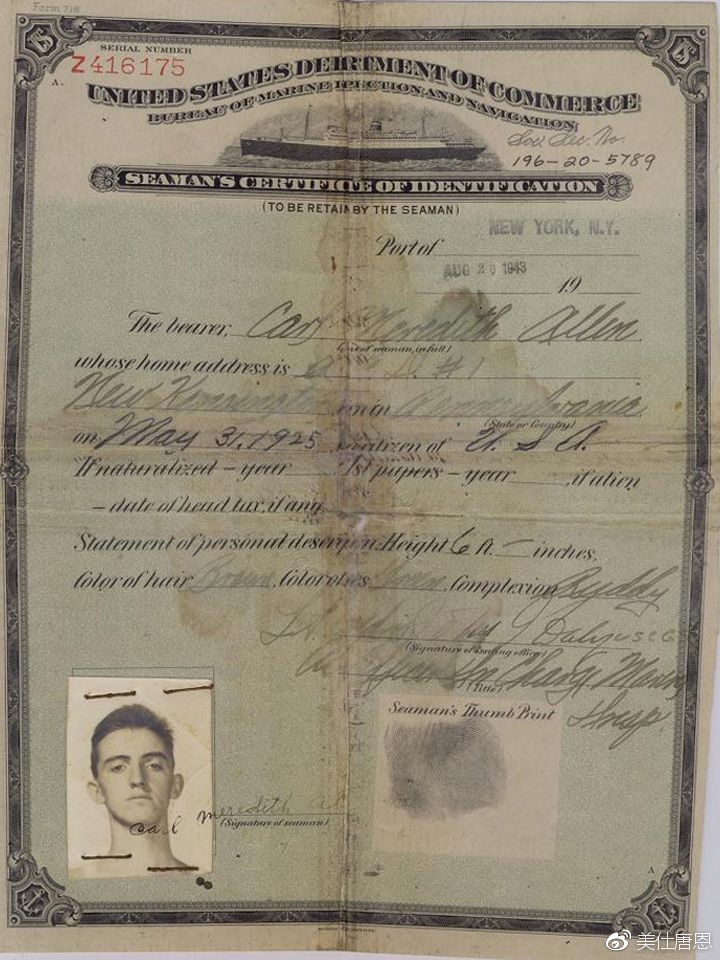 Form 718
SERIAL NUMBER
Z416175
A.
UNITED STATES DEIRTMENT OF COMMERCE
BUREAU OF MARINE IPECTION AND NAVIGATION
Soc. Sec. No.
196-20-5789
SEAMAN'S CERTIFICTE OF IDENTIFICATION
(TO BE RETAIN BY THE SEAMAN)
Port of NEW YORK, N.Y.
AUG 20 1943 19
The bearer, Carl Meredith Allen
(Name of seaman, in full)
whose home address is #1
New Kensington in Pennsylvania
(State or Country)
on May 31, 1925 citizen of U.S.A.
If naturalized – year 1st papers – year , if alien
– date of head tax, if any
Statement of personal descrption: Height 6 ft. – inches,
Color of hair Brown, Color of es, Complexion Ruddy
(Signature of issuing officer)
In Charge
(Title)
Seaman's Thumb Print
carl meredith
(Signature of seaman)
A
美仕唐恩